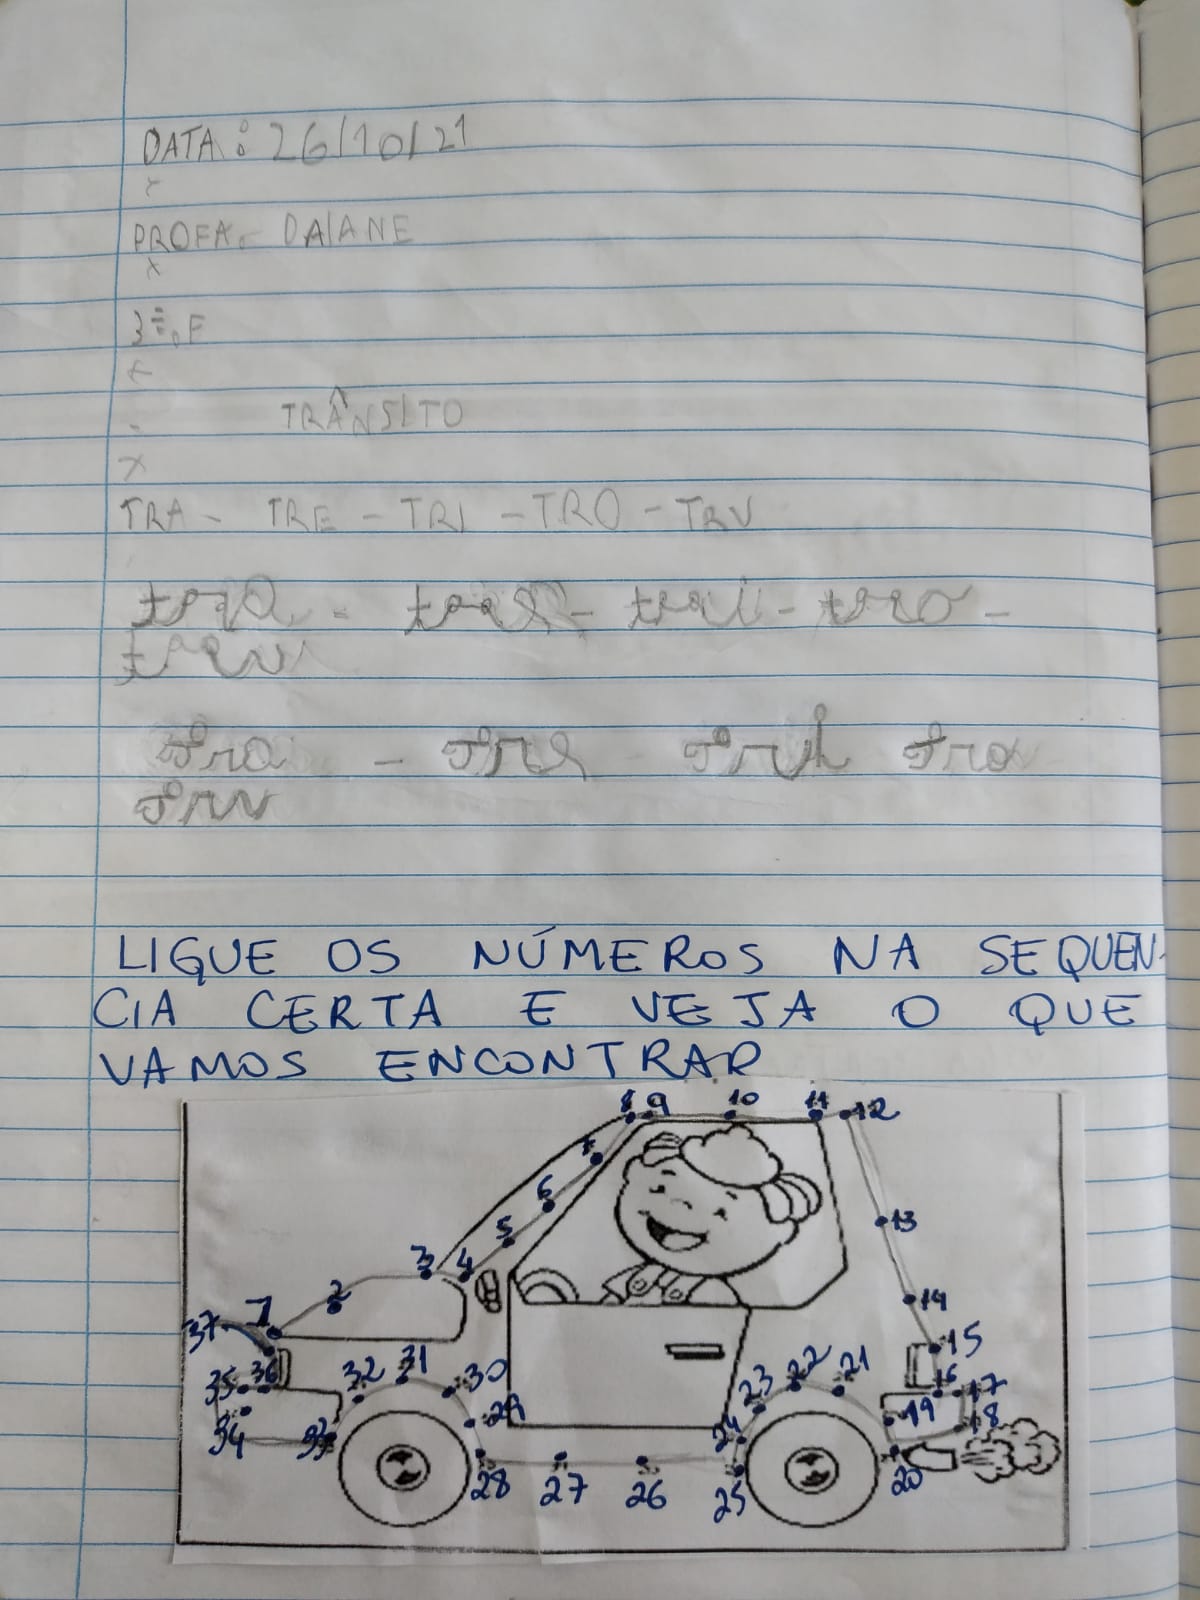 DATA: 26/10/21
PROFA. DAIANE
3º.F
TRÂNSITO
TRA - TRE - TRI - TRO - TRU
tra - tre - tri - tro -
tru
Tra - Tre Tri Tro
Tru
LIGUE OS NÚMEROS NA SEQUEN-
CIA CERTA E VEJA O QUE
VAMOS ENCONTRAR
8 9 10 11 12
7
6
5 13
3 4
2 14
37 1 15
31 22 21
35 36 32 30 23 16 17
29 19 18
34 33 24
28 27 26 25 20